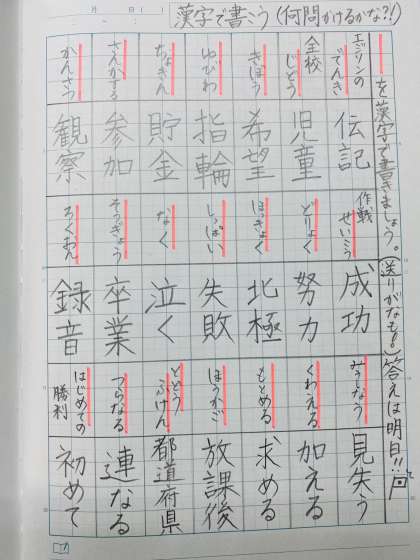 月 日( )
漢字で書こう(何問かけるかな?!)
を漢字で書きましょう。(送りがなも!)答えは明日!!
エジソンの
でんき
伝記
作戦
せいこう
成功
みうしなう
見失う
全校
じどう
児童
どりょく
努力
くわえる
加える
きぼう
希望
ほっきょく
北極
もとめる
求める
ゆびわ
指輪
しっぱい
失敗
ほうかご
放課後
ちょきん
貯金
なく
泣く
とどう
ふけん
都道府県
さんかする
参加
そつぎょう
卒業
つらなる
連なる
かんさつ
観察
ろくおん
録音
はじめての
勝利
初めて